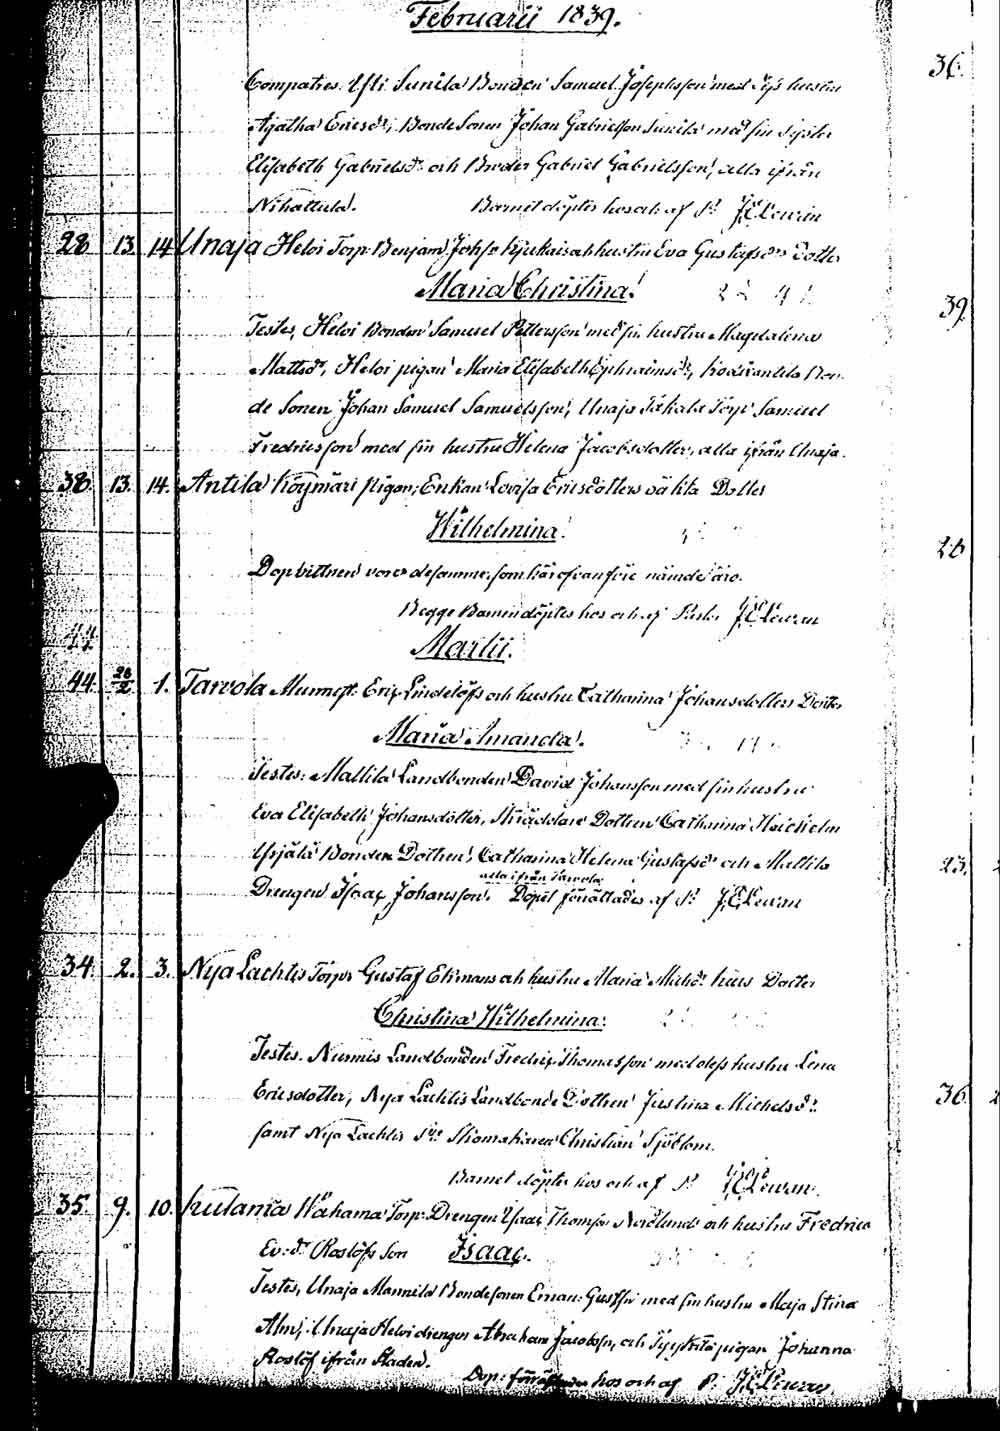 Februarii 1839.
36.
Compatres. Ysti Sunila Bonden Samuel Josephsson med hustru
Agatha Ericsdr, Bonde Sonen Johan Gabrielsson Sunila med sin syster
Elisabeth Gabrielsdr och Broder Gabriel Gabrielsson, alla ifrån
Nihattula. Barnet döptes hos och af Pr JELewan
28 13. 14 Unaja Heloi Torp. Benjam. Johss. och hustru Eva Gustafsdrs Dotter
Maria Christina.
39.
Testes, Heloi Bonden Samuel Pettersson med sin hustru Magdalena
Mattsdr, Heloi pigan Maria Elisabeth Ephraimsdr, Bon-
de Sonen Johan Samuel Samuelsson, Unaja Takala Torp. Samuel
Fredricsson med sin hustru Helena Jacobsdotter, alla ifrån Unaja.
38. 13. 14. Antila Köymäri pigan, Enkan Lovisa Ericsdotters oäkta Dotter
Wilhelmina.
26
Dopvittnen voro desamme som härofvanföre nämde äro.
Begge Barnen döptes hos och af Pastor JELewan
44
Martii.
44. 28/2 1. Tarvola Murmest. Eric Lindelöfs och hustru Catharina Johansdotters Dotter
Maria Amanda.
Testes: Mattila Landbonden David Johansson med sin hustru
Eva Elisabeth Johansdotter, Skräddare Dottren Catharina
Yrjälä Bonden Dottren, Catharina Helena Gustafsdr och Mattila
23.
alla ifrån Tarvola
Drengen Isaac Johansson. Döpet förättades af Pr JELewan
34. 2. 3. Nya Lachtis Torp. Gustaf Ekmans och hustru Maria Michsdr Dotter
Christina Wilhelmina.
Testes. Nurmis Landbonden Fredric Thomasson med dess hustru Lena
Ericsdotter, Nya Lachtis Landbonde Dottren Justina Michelsdr
36.
samt Nya Lachtis Skomakaren Christian Sjöblom.
Barnet döptes hos och af Pr JELewan.
35. 9. 10. Kulamaa Wähämaa Torp. Drengen Isaac Thomss. Nordlunds och hustru Fredrica
Ev:dr Roslöfs Son Isaac.
Testes, Unaja Mannila Bondesonen Eman: Gustfss. med sin hustru Maja Stina
Alm, Unaja Heloi drengen Abraham Jacobss., och pigan Johanna
Roslöf ifrån Staden. Dop: förättades hos och af P. JELewan.